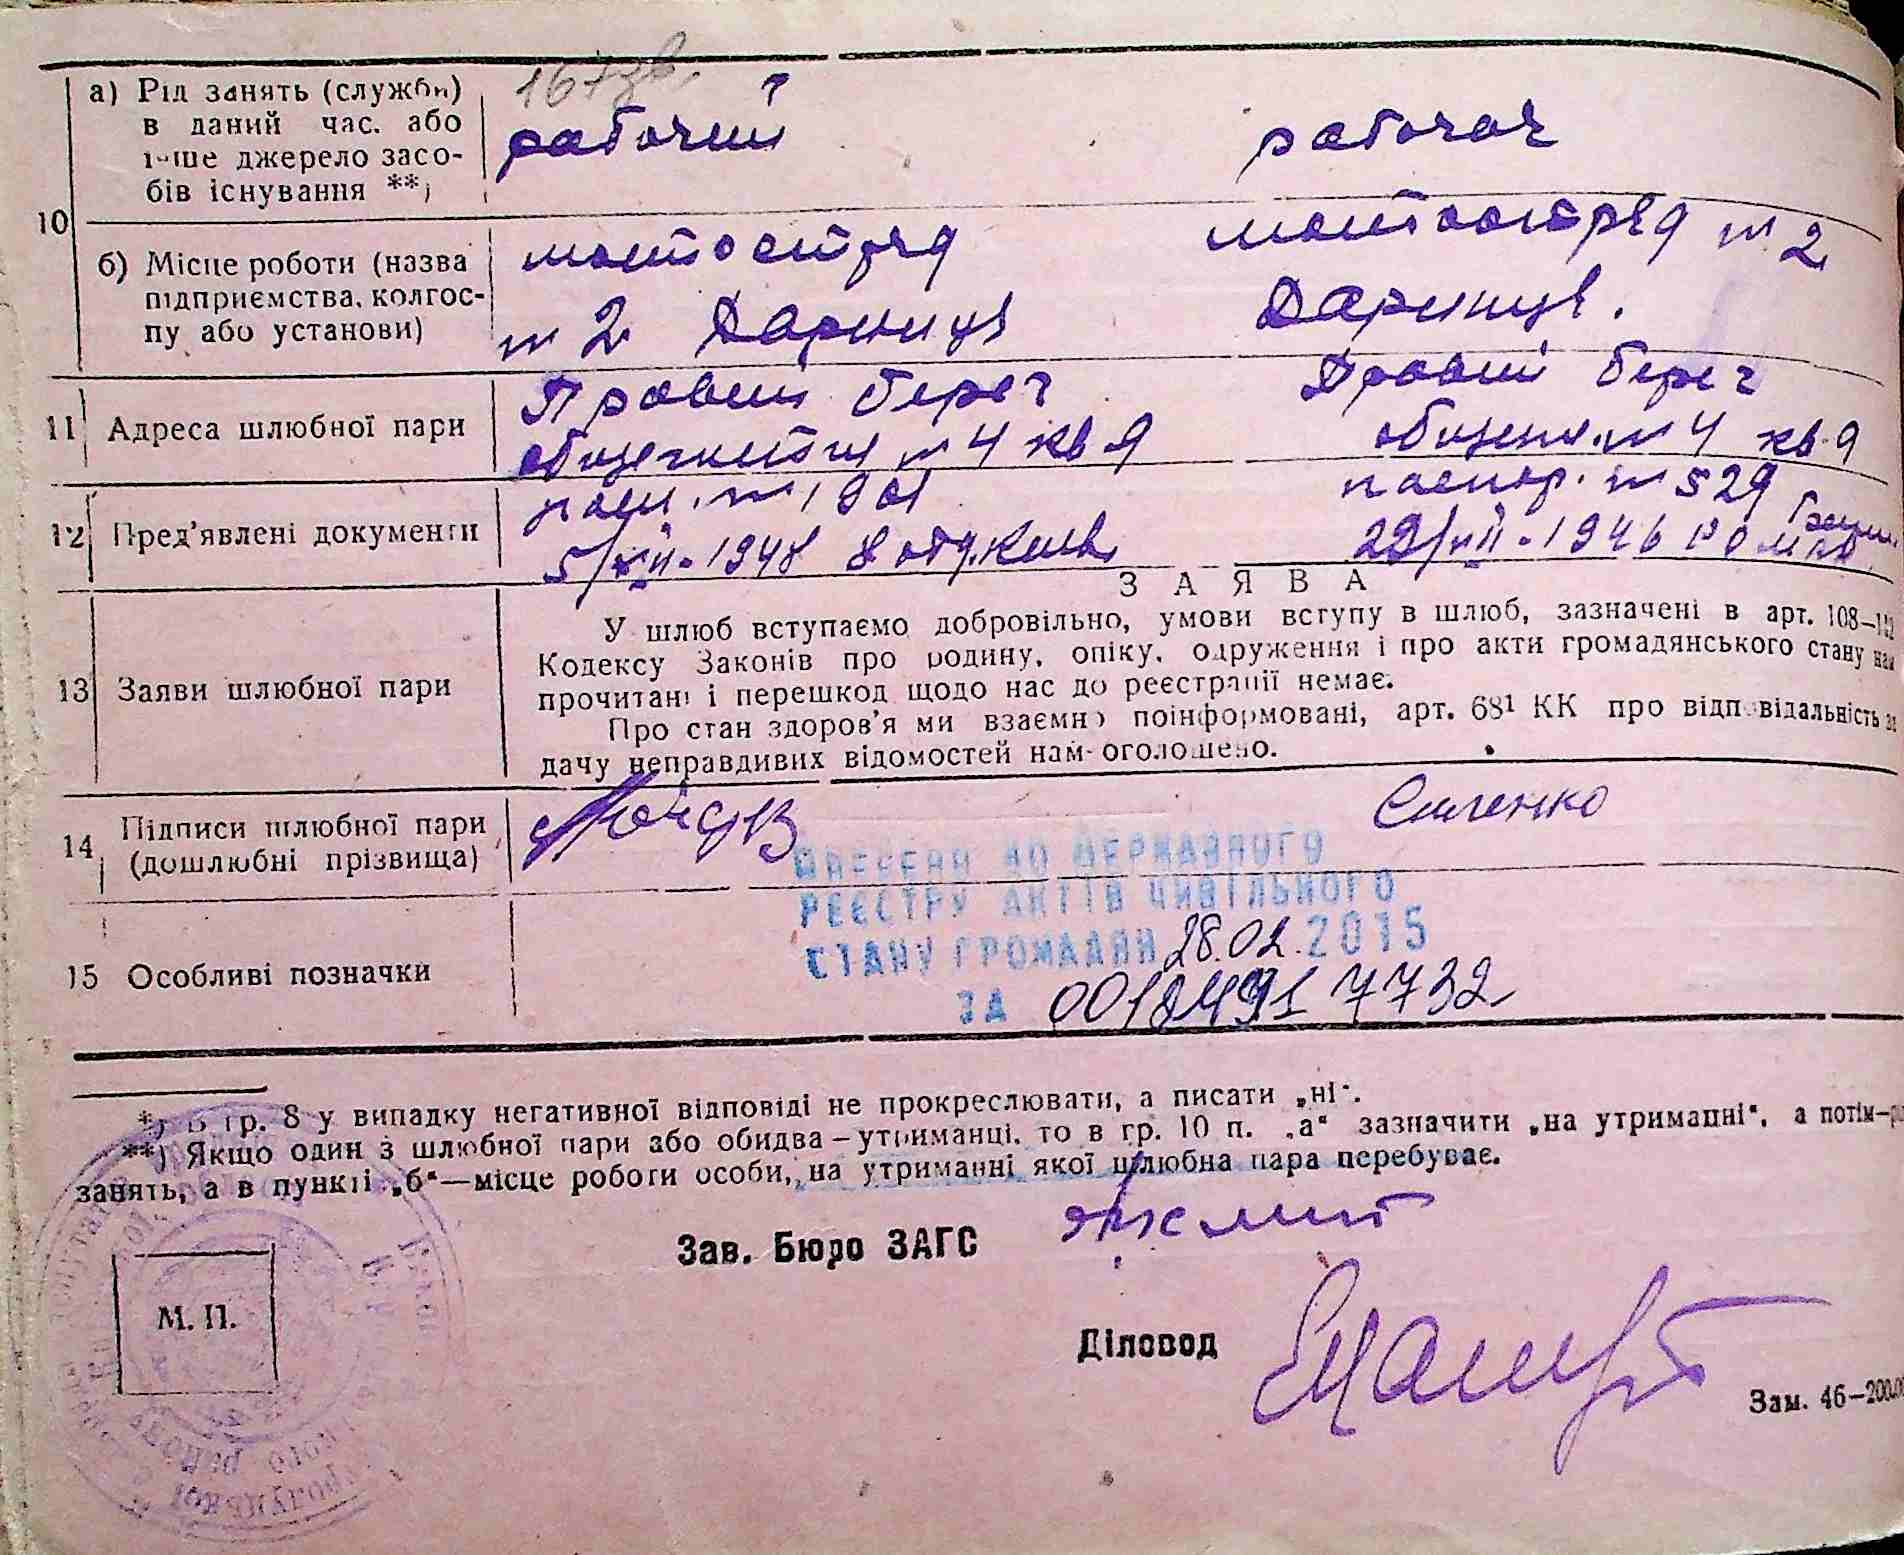 а) Рід занять (служби) рабочий рабочая
в даний час. або
інше джерело засо-
бів існування **)
10
б) Місце роботи (назва мостоотряд мостоотряд № 2
підприємства, колгос-
пу або установи) № 2 Дарница Дарница.
11 Адреса шлюбної пари Правий берег Правий берег
общежития № 4 кв 9 общежи. № 4 кв. 9
12 Пред'явлені документи паспор. № 529
5/XII-1948 8 отд. Киев 29/VII-1946
З А Я В А
13 Заяви шлюбної пари
У шлюб вступаємо добровільно, умови вступу в шлюб, зазначені в арт. 108–
Кодексу Законів про родину, опіку, одруження і про акти громадянського стану нам
прочитані і перешкод щодо нас до реєстрації немає.
Про стан здоров'я ми взаємно поінформовані, арт. 68¹ КК про відповідальність за
дачу неправдивих відомостей нам оголошено.
14 Підписи шлюбної пари
(дошлюбні прізвища)
ВНЕСЕНО ДО ДЕРЖАВНОГО
РЕЄСТРУ АКТІВ ЦИВІЛЬНОГО
СТАНУ ГРОМАДЯН 28.02.2015
15 Особливі позначки
ЗА
*) В гр. 8 у випадку негативної відповіді не прокреслювати, а писати „ні".
**) Якщо один з шлюбної пари або обидва – утриманці, то в гр. 10 п. „а" зазначити „на утриманні", а потім–
занять, а в пункті „б"—місце роботи особи, на утриманні якої шлюбна пара перебуває.
Зав. Бюро ЗАГС
М. П.
Діловод
Зам. 46–200.0